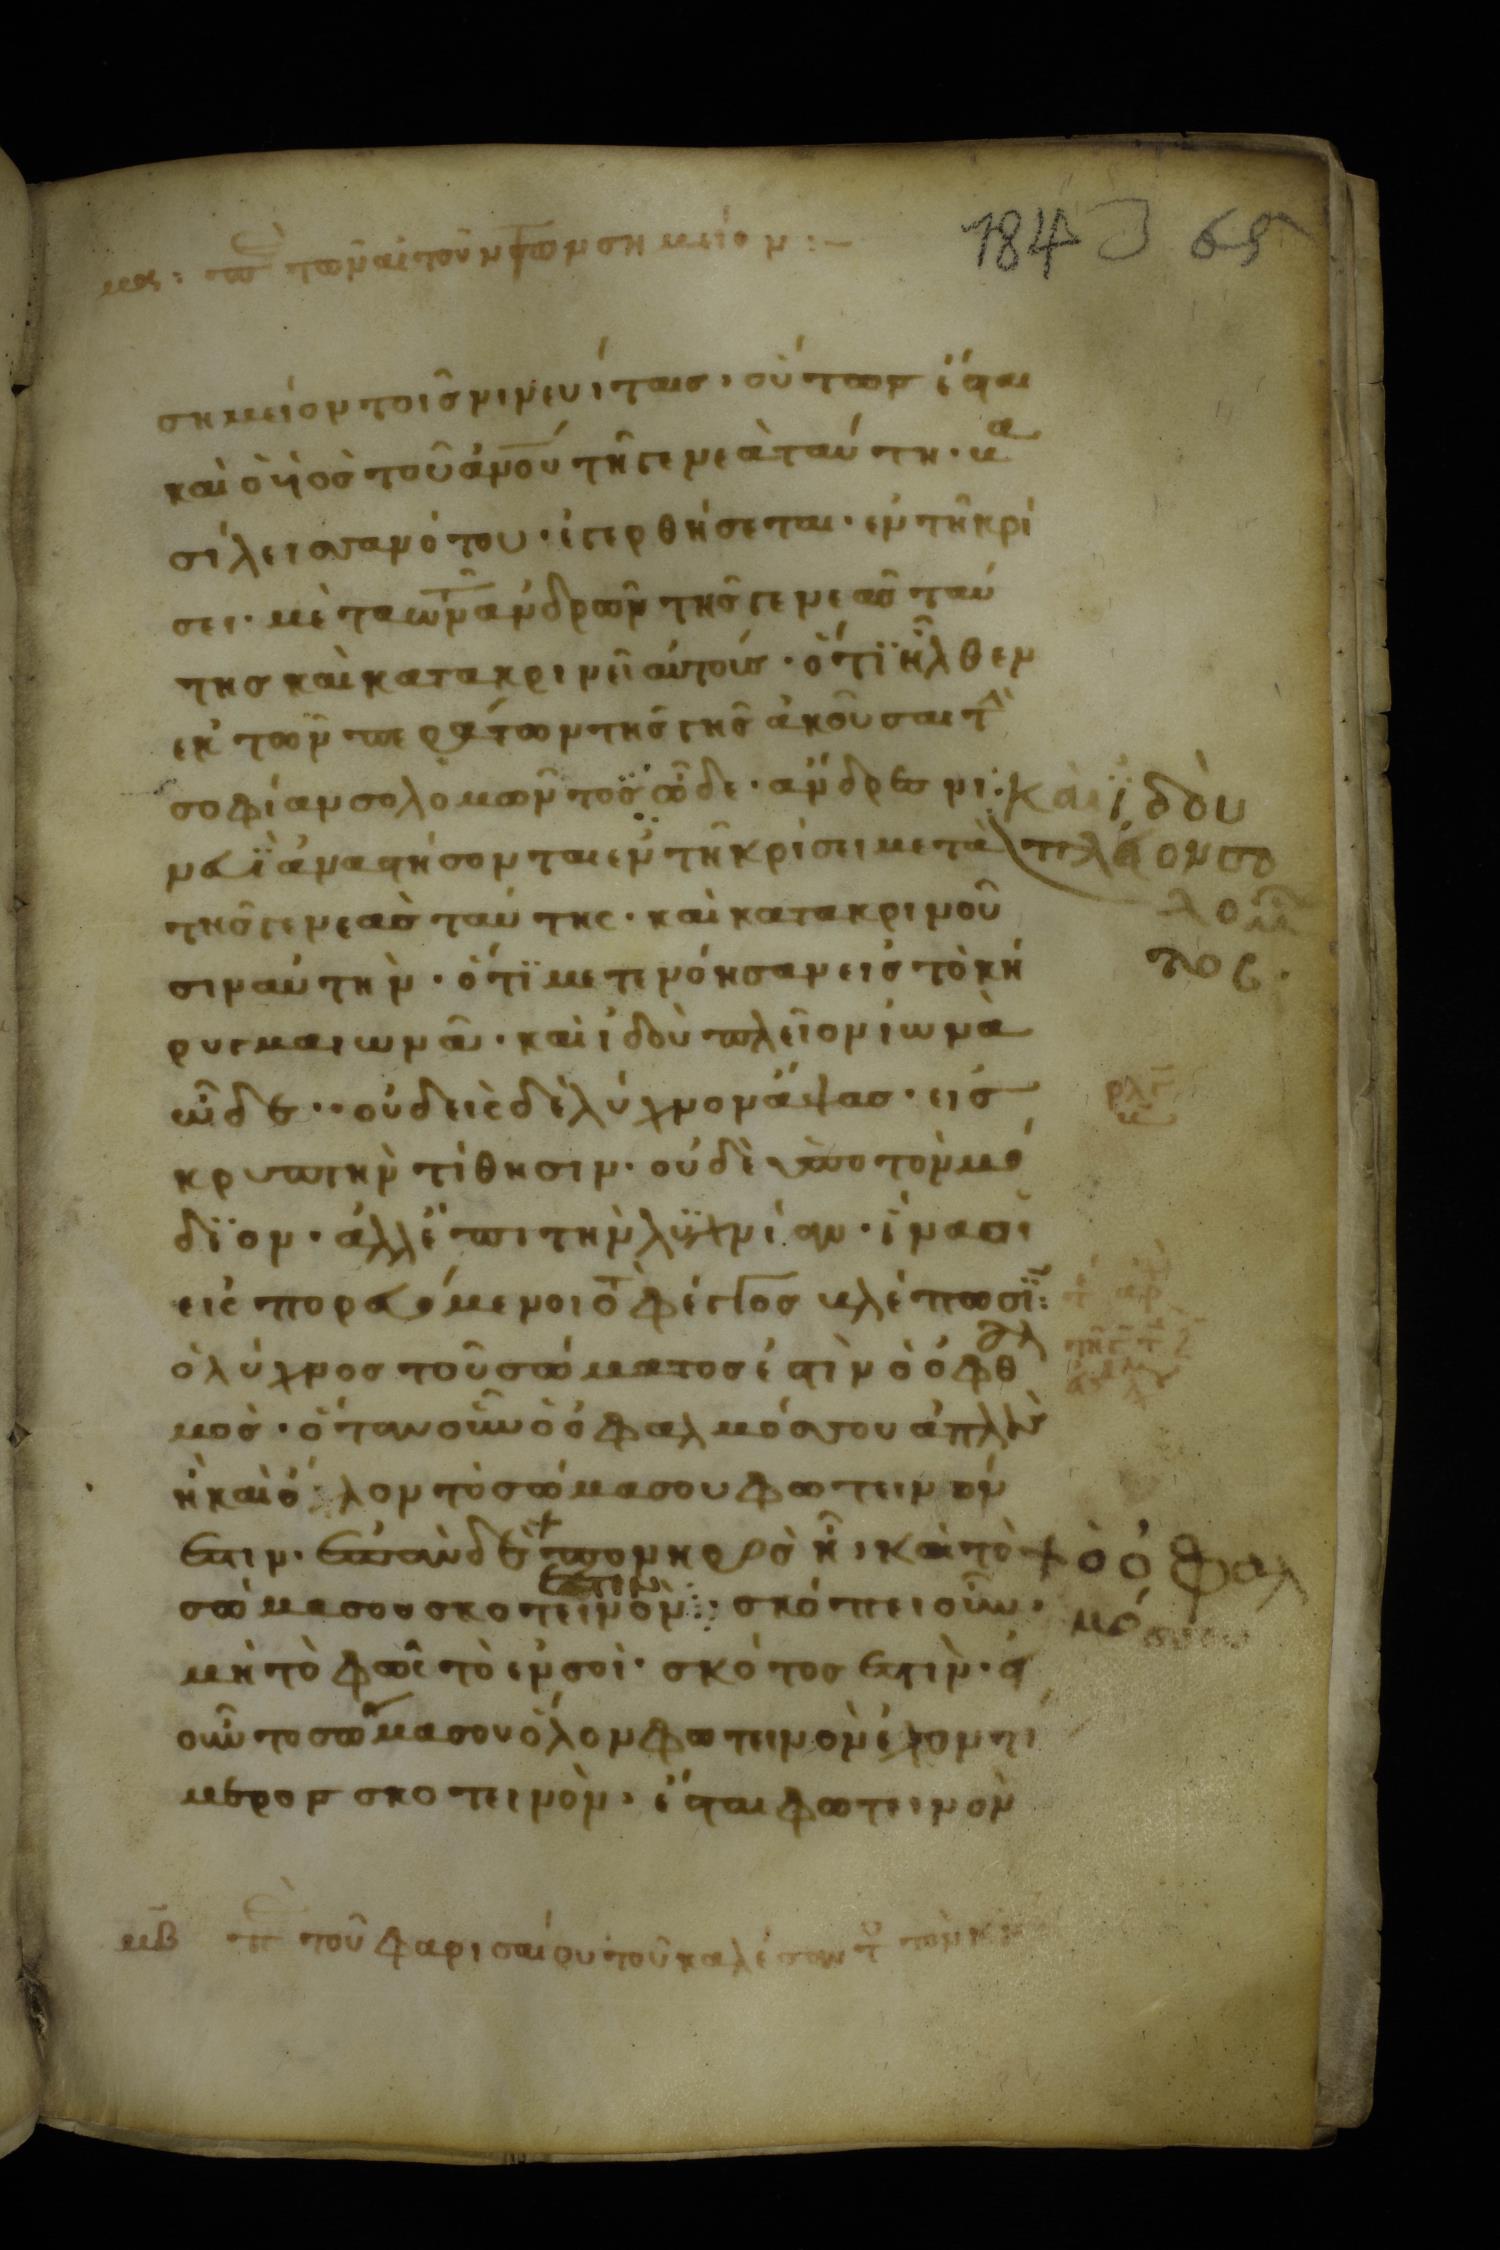 184 65
μα: π τῶν αἰτούντων σημεῖον:–
σημεῖον τοῖς νινευίταισ, οὕτωσ ἔσται
καὶ ὁ υἱὸσ τοῦ ἀνου τῆ γενεὰ ταύτη. βα
σίλεισα νότου. ἐγερθήσεται. ἐν τῆ κρί
σει. μὲτα τῶν ἀνδρῶν τῆς γενεᾶσ ταύ
τησ καὶ κατακρινεῖ αὐτούσ. ὅτϊ ἦλθεν
ἐκ τῶν περάτων τῆς γῆς ἀκοῦσαι τὴ
σοφίαν σολομῶντοσ ὧδε. ἄνδρεσ νι
νευῒ ἀναστήσονται ἐν τῆ κρίσει μετὰ
τῆς γενεᾶσ ταύτης. καὶ κατακρινοῦ
σιν αὐτὴν. ὅτϊ μετενόησαν εἰς τὸ κή
ρυγμα ιωνᾶ. καὶ ἰδοὺ πλεῖον ἰωνὰ
ὧδε. οὐδεὶς δὲ λύχνον ἅψασ. εἰς
κρυπτὴν τίθησιν. οὐδὲ ὑπὸ τὸν μό
δϊον. ἀλλ' ἔπι τὴν λϋχνίαν. ἵνα οἱ
εἰσπορευόμενοι τὸ φέγγοσ βλέπωσϊ:
ὁ λύχνοσ τοῦ σώματοσ ἐστὶν ὁ ὀφθαλ
μὸσ. ὅταν οὖν ὁ ὀφθαλμόσ σου ἁπλοῦσ
ἦ καὶ ὅλον τὸ σῶμα σου φωτεινόν
ἐστιν. ἐπὰν δὲ πονηρὸσ ἦ, καὶ τὸ
σῶμα σου σκοτεινὸν: σκόπει οὖν.
ἐστιν
μὴ τὸ φῶς τὸ ἐν σοὶ. σκότοσ ἐστὶν. εἰ
οὖν το σῶμα σου ὅλον φωτεινὸν ἔχον τὶ
μέροσ σκοτεινὸν, ἔσται φωτεινὸν
καὶ ἰδοὺ
πλεῖον σο
λομῶ
τος.
ρλγ
ὁ ὀφθαλ
μόσ σου
μβ π τοῦ φαρισαίου τοῦ καλέσαντ τὸν